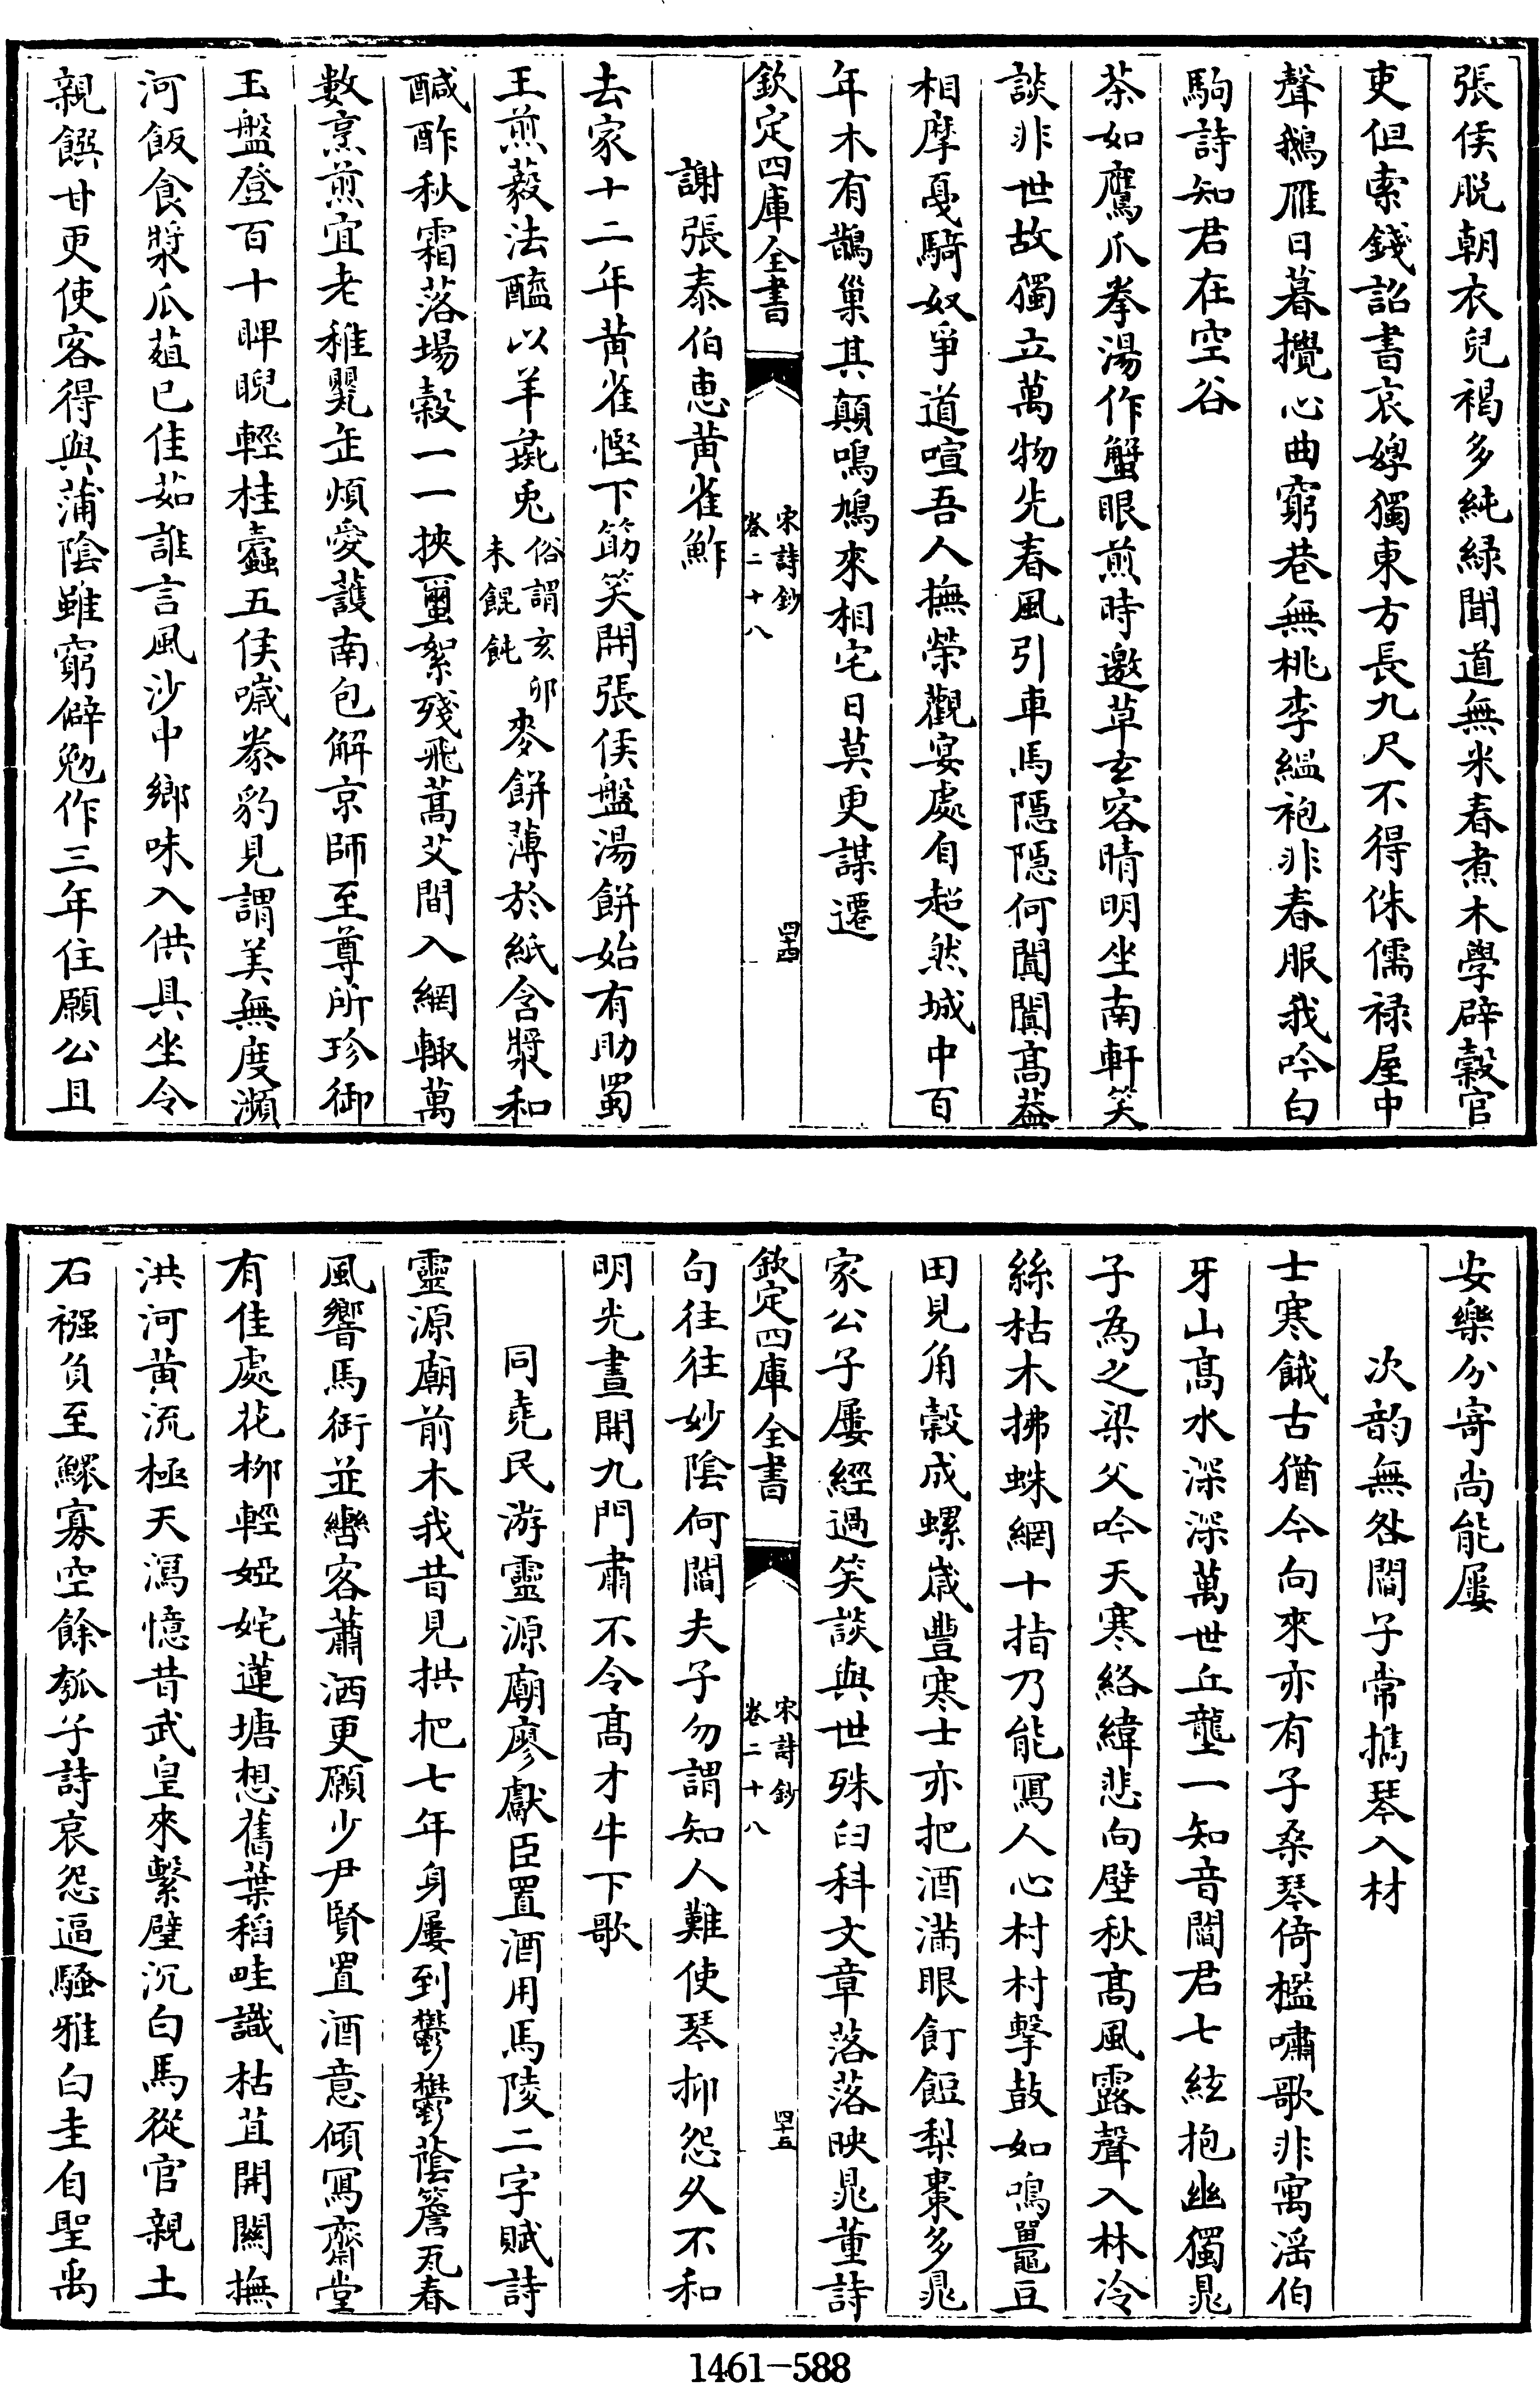 張侯脱朝衣兒褐多純緑聞道無米舂煮木學辟穀官
吏但索錢詔書哀㷀獨東方長九尺不得侏儒禄屋中
聲鵝雁日暮攪心曲窮巷無桃李緼袍非春服我吟白
駒詩知君在空谷
茶如鷹爪拳湯作蟹眼煎時邀草玄客晴明坐南軒笑
談非世故獨立萬物先春風引車馬隠隠何闐闐髙葢
相摩戛騎奴爭道喧吾人撫榮觀宴處自超然城中百
年木有鵲巢其顛鳴鳩來相宅日莫更謀遷
欽定四庫全書
宋詩鈔
卷二十八
四十四
謝張泰伯恵黄雀鮓
去家十二年黄雀慳下筯笑開張侯盤湯餅始有助蜀
王煎藙法醢以羊彘兎
俗謂亥卯
未餛飩
麥餅薄於紙含漿和
醎酢秋霜落場穀一一挾蠒絮殘飛蒿艾間入網輙萬
數烹煎宜老稚罌缶煩愛護南包解京師至尊所珍御
玉盤登百十睥睨輕桂蠧五侯噦豢豹見謂美無度瀕
河飯食漿瓜葅已佳茹誰言風沙中鄉味入供具坐令
親饌甘更使客得與蒲隂雖窮僻勉作三年住願公且
安樂分寄尚能屢
次韵無咎閻子常擕琴入村
士寒餓古猶今向來亦有子桑琴倚檻嘯歌非寓滛伯
牙山髙水深深萬世丘壟一知音閻君七絃抱幽獨晁
子為之梁父吟天寒絡緯悲向壁秋髙風露聲入林冷
絲枯木拂蛛網十指乃能冩人心村村擊鼓如鳴鼉豆
田見角榖成螺嵗豐寒士亦把酒滿眼飣餖梨棗多晁
家公子屢經過笑談與世殊臼科文章落落映晁董詩
欽定四庫全書
宋詩鈔
卷二十八
四十五
句往往妙隂何閻夫子勿謂知人難使琴抑怨久不和
明光晝開九門肅不令髙才牛下歌
同堯民游靈源廟廖獻臣置酒用馬陵二字賦詩
靈源廟前木我昔見拱把七年身屢到鬱鬱蔭簷瓦春
風響馬街並轡客蕭洒更願少尹賢置酒意傾冩齋堂
有佳處花栁輕婭姹蓮塘想舊葉稻畦識枯苴開闗撫
洪河黄流極天瀉憶昔武皇來繫璧沉白馬從官親土
石襁負至鰥寡空餘瓠子詩哀怨逼騷雅白圭自聖禹
1461-588